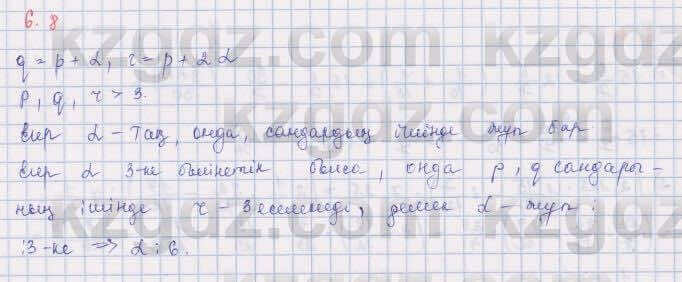 6.8
q = p + d, r = p + 2d
p, q, r > 3.
егер d - тақ, онда, сандардың ішінде жұп бар
егер d 3-ке бөлінетін болса, онда p, q сандары-
ның ішінде r - 3 еселенеді, демек d - жұп :
:3-ке => d : 6.
kzgdz.com